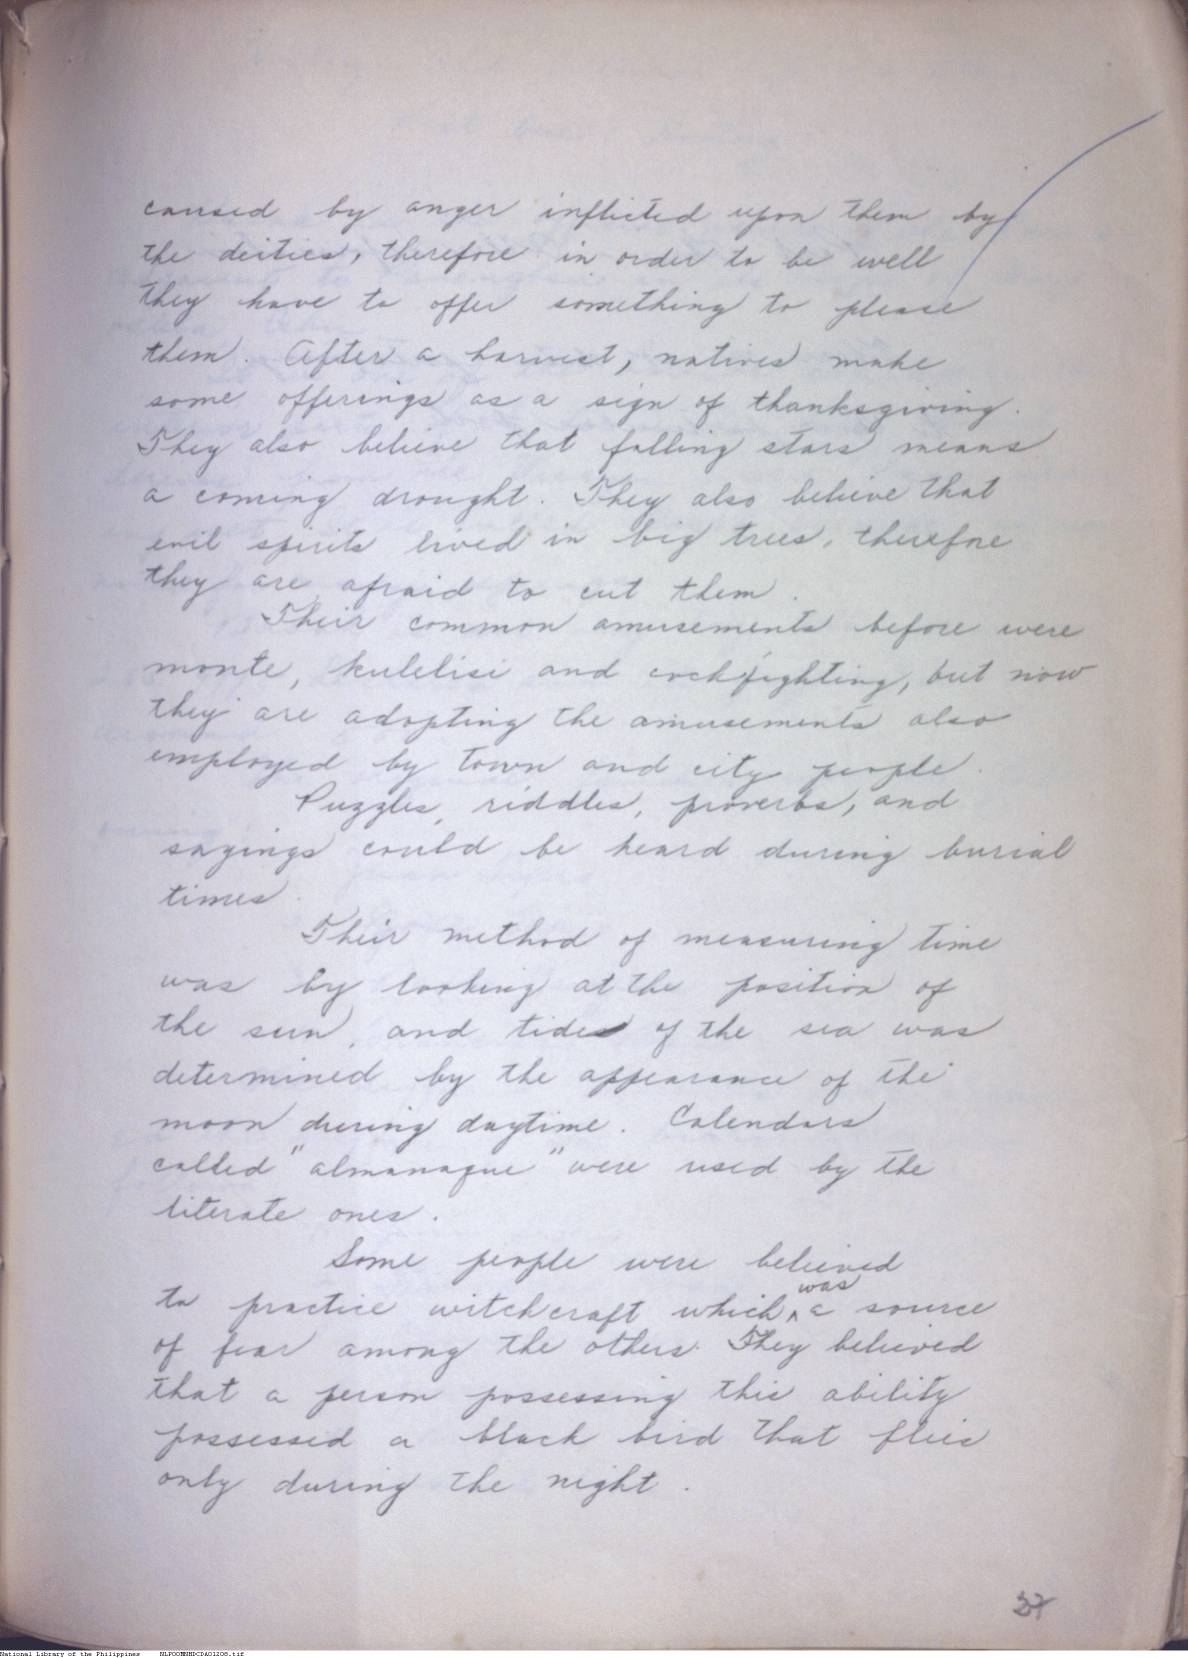 caused by anger inflicted upon them by
the deities, therefore in order to be well
they have to offer something to please
them. After a harvest, natives make
some offerings as a sign of thanksgiving.
They also believe that falling stars means
a coming drought. They also believe that
evil spirits lived in big trees, therefore
they are afraid to cut them.
Their common amusements before were
monte, kulelisi and cockfighting, but now
they are adopting the amusements also
employed by town and city people.
Puzzles, riddles, proverbs, and
sayings could be heard during burial
times.
Their method of measuring time
was by looking at the position of
the sun, and tides of the sea was
determined by the appearance of the
moon during daytime. Calendars
called "almanaque" were used by the
literate ones.
Some people were believed
to practice witchcraft which was a source
of fear among the others. They believed
that a person possessing this ability
possessed a black bird that flies
only during the night.
National Library of the Philippines